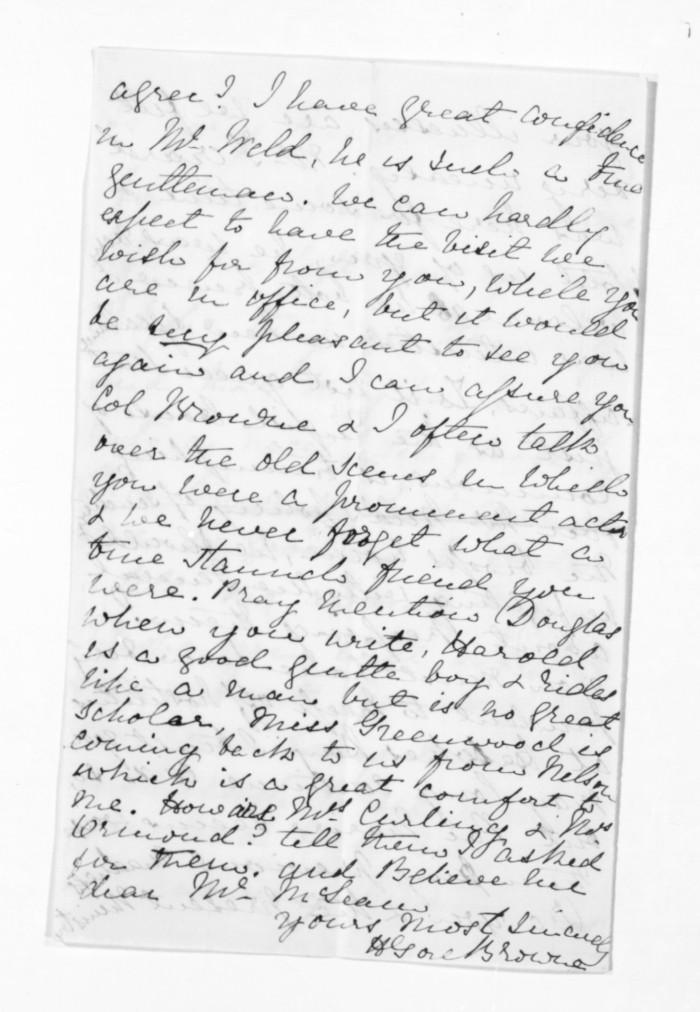 agree? I have great confidence
in Mr. Weld, he is such a true
gentleman. We can hardly
expect to have the visit we
wish for from you, while you
are in office, but it would
be very pleasant to see you
again and I can assure you
Col Browne & I often talk
over the old scenes in which
you were a prominent actor
& we never forget what a
true staunch friend you
were. Pray mention Douglas
when you write, Harold
is a good gentle boy & rides
like a man but is no great
scholar, Miss Greenwood is
coming back to us from Nelson
which is a great comfort to
me. How are Mrs Curling & Mrs
Ormond? tell them I asked
for them. and Believe me
dear Mr. McLean
yours most sincerely
H Gore Browne